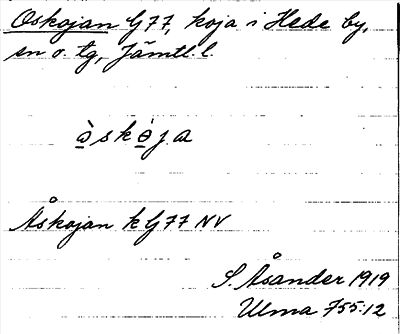 Oskojan G77, koja i Hede by,
sn o. tg, Jämtl. l.
ò̲skɵ̲̀ja
Åskojan k G77 NV
S. Åsander 1919
Ulma 755:12